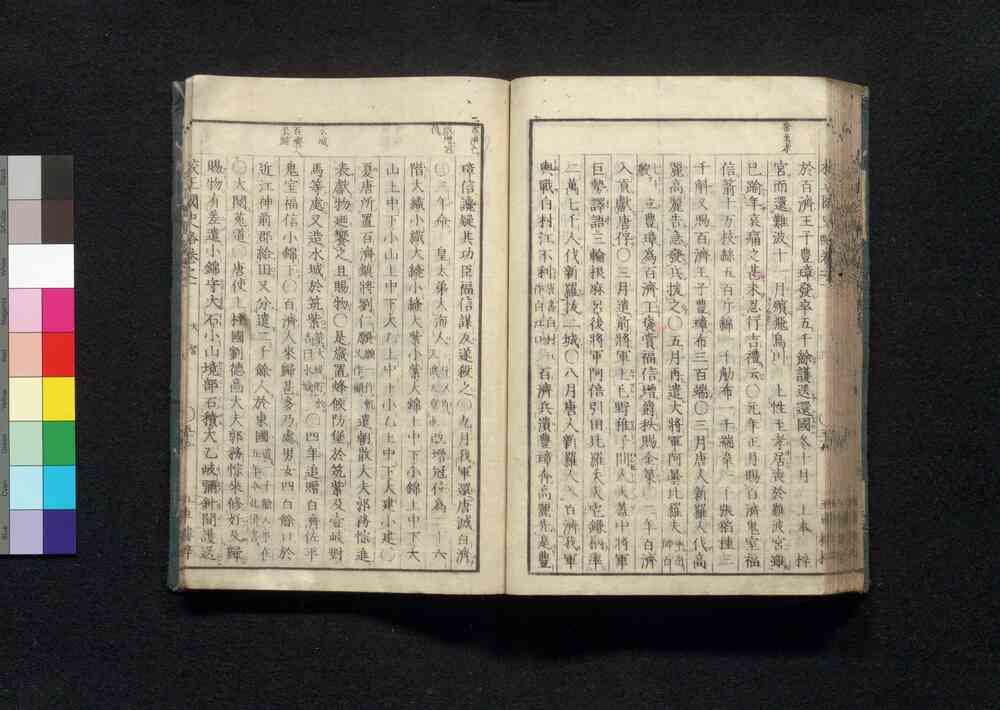 於百濟王子豐璋發卒五千餘護送還國冬十月 上奉 梓
宮而還難波十一月殯飛鳥川 上性至孝居喪於難波宮雖
已踰年哀痛之甚未忍行吉禮云〇元年正月賜百濟鬼室福
信箭十万枝絲五百斤綿一千觔布一千端韋一千張稻種三
千斛又賜百濟王子豐璋布三百端〇三月唐人新羅人伐高
麗高麗告急發兵抗之〇五月再遣大將軍阿曇比羅夫
立豐璋為百濟王褒賞福信增爵秩賜金策 二年百濟
入貢獻唐俘〇三月遣前將軍上毛野稚子間人大蓋中將軍
巨勢譯語三輪根麻呂後將軍阿倍引田比羅夫大宅鎌柄率
二萬七千人伐新羅拔二城〇八月唐人新羅人 百濟我軍
與戰白村江不利 百濟兵潰豐璋奔高麗先是豐
璋信讒疑其功臣福信謀反遂殺之〇九月我軍還唐滅百濟
三年命 皇太弟大海人 改增冠位為二十六
階大織小織大縫小縫大紫小紫大錦上中下小錦上中下大
山上中下小山上中下大乙上中下小乙上中下大建小建〇
夏唐所置百濟鎮將劉仁願 遣朝散大夫郭務悰進
表獻物廼饗之且賜物〇是歲置蜂候防堡於筑紫及壹岐對
馬等處又造水城於筑紫 〇四年追贈百濟佐平
鬼室福信小錦下〇百濟人來歸甚多乃處男女四百餘口於
近江神前郡給田又分遣二千餘人於東國
〇大閲菟道〇唐使上柱國劉德高大夫郭務悰來修好及歸
賜物有差遣小錦守大石小山境部石積大乙岐彌針間護送
校正國史略卷之一